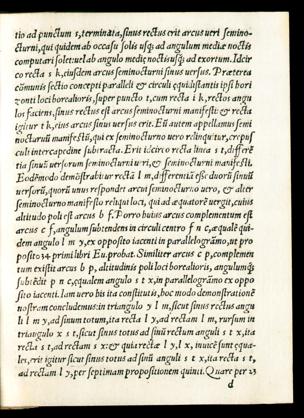 tio ad punctum s, terminata, sinus rectus erit arcus veri semino-
cturni, qui quidem ab occasu solis usq; ad angulum mediæ noctis
computari solet: uel ab angulo mediæ noctis usq; ad exortum. Idcir
co recta s k, eiusdem arcus seminocturni sinus uersus. Præterea
cõmunis sectio concepti paralleli & circuli equidistantis ipsi hori
zonti loci borealioris, super puncto t, cum recta i k, rectos angu
los faciens, sinus rectus est arcus seminocturni manifesti: & recta
igitur t k, eius arcus sinus uersus erit. Eũ autem appellamus semi
nocturnũ manifestũ, qui ex seminocturno uero relinquitur, crepus
culi intercapedine subtracta. Erit idcirco recta linea s t, differẽ
tia sinuũ uersorum seminocturni ueri, & seminocturni manifesti.
Eodẽmodo demõstrabitur recta l m, differentiã esse duorũ sinuũ
uersorũ, quorũ unus respondet arcui seminocturno uero, & alter
seminocturno manifesto reliqui loci, qui ad æquatorẽ uergit, cuius
altitudo poli est arcus b f. Porro huius arcus complementum est
arcus c f, angulum subtendens in circuli centro f n c, æqualẽ qui-
dem angulo l m y, ex opposito iacenti in parallelogrãmo, ut pro
positio 34 primi libri Eu. probat. Similiter arcus c p, complemen
tum existit arcus b p, altitudinis poli loci borealioris, angulumq;
subtẽdit p n c, equalem angulo s t x, in parallelogrãmo ex oppo
sito iacenti. Iam uero his ita constitutis, hoc modo demonstrationẽ
nostram concludemus: in triangulo y l m, sicut sinus rectus angu
li l m y, ad sinum totum, ita recta l y, ad rectam l m, rursum in
triangulo x s t, sicut sinus totus ad sinũ rectum anguli s t x, ita
recta s t, ad rectam s x: & quia rectæ l y, s x, inuicẽ sunt equa-
les, erit igitur sicut sinus totus ad sinũ anguli s t x, ita recta s t,
ad rectam l y, per septimam propositionem quinti. Quare per 23
d